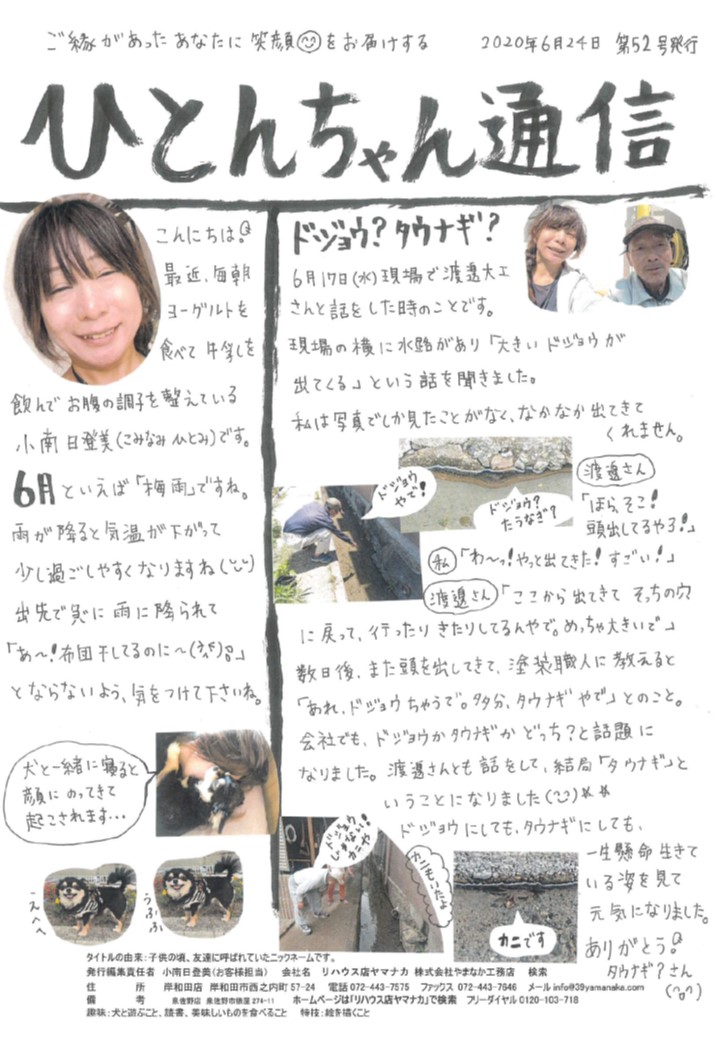 ご縁があったあなたに笑顔をお届けする
2020年6月24日 第52号発行
ひとんちゃん通信
こんにちは。
最近、毎朝
ヨーグルトを
食べて牛乳を
飲んでお腹の調子を整えている
小南日登美(こみなみひとみ)です。
6月といえば「梅雨」ですね。
雨が降ると気温が下がって
少し過ごしやすくなりますね
出先で急に雨に降られて
「あ〜!布団干してるのに〜」
とならないよう、気をつけて下さいね。
犬と一緒に寝ると
顔にのってきて
起こされます...
えへへ
うふふ
ドジョウ?タウナギ?
6月17日(水)現場で渡邉大工
さんと話をした時のことです。
現場の横に水路があり「大きいドジョウが
出てくる」という話を聞きました。
私は写真でしか見たことがなく、なかなか出てきて
くれません。
ドジョウ
やで!
ドジョウ?
たうなぎ?
渡邉さん
「ほら、そこ!
頭出してるやろ!」
私「わ〜っ!やっと出てきた!すごい!」
渡邉さん「ここから出てきて そっちの穴
に戻って、行ったり きたりしてるんやで。めっちゃ大きいで」
数日後、また頭を出してきて、塗装職人に教えると
「あれ、ドジョウちゃうで。多分、タウナギやで」とのこと。
会社でも、ドジョウかタウナギかどっち?と話題に
なりました。渡邉さんとも話をして、結局「タウナギ」と
いうことになりました
ドジョウにしても、タウナギにしても、
一生懸命生きて
いる姿を見て
元気になりました。
ありがとう。
タウナギ?さん
ドジョウ
じゃない!
カニや
カニもいたよ
カニです
タイトルの由来:子供の頃、友達に呼ばれていたニックネームです。
発行編集責任者 小南日登美(お客様担当) 会社名 リハウス店ヤマナカ 株式会社やまなか工務店 検索
住 所 岸和田店 岸和田市西之内町57-24 電話 072-443-7575 ファックス 072-443-7646 メール info@39yamanaka.com
備 考 泉佐野店 泉佐野市俵屋274-11 ホームページは「リハウス店ヤマナカ」で検索 フリーダイヤル 0120-103-718
趣味:犬と遊ぶこと、読書、美味しいものを食べること 特技:絵を描くこと